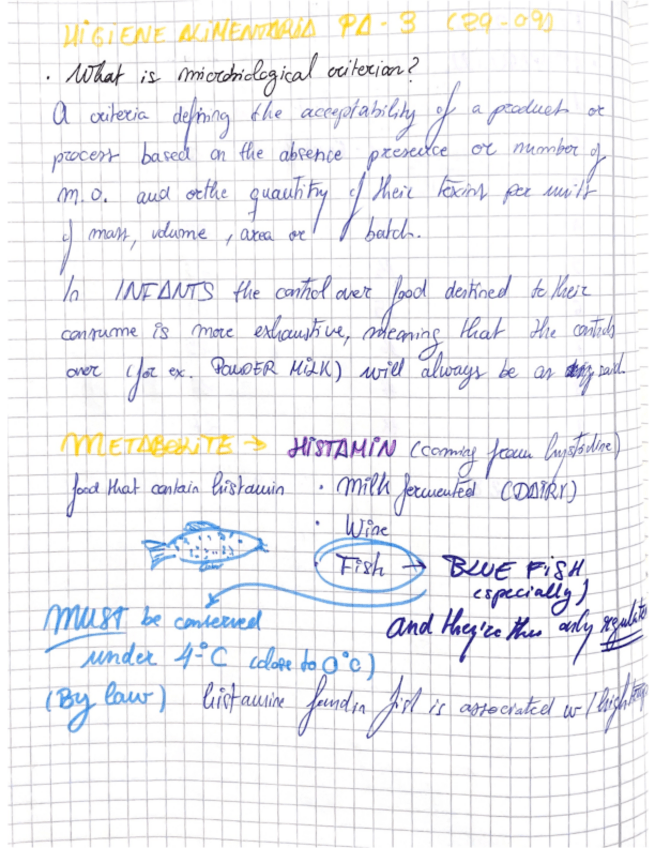 HIGIENE ALIMENTARIA PA - 3 (29-09)
· What is microbiological criterion?
A criteria defining the acceptability of a product or
process based on the absence presence or number of
m.o. and orthe quantity of their toxins per unit
of mass, volume, area or batch.
In INFANTS the control over food destined to their
consume is more exhaustive, meaning that the controls
over (for ex. POWDER MILK) will always be as said.
METABOLITE → HISTAMIN (coming from hystidine)
food that contain histamin · Milk fermented (DAIRY)
· Wine
· Fish → BLUE FISH
(specially)
MUST be conserved and they're the only
under 4°C (close to 0°C)
(By law) histamine found in fish is associated w/ high